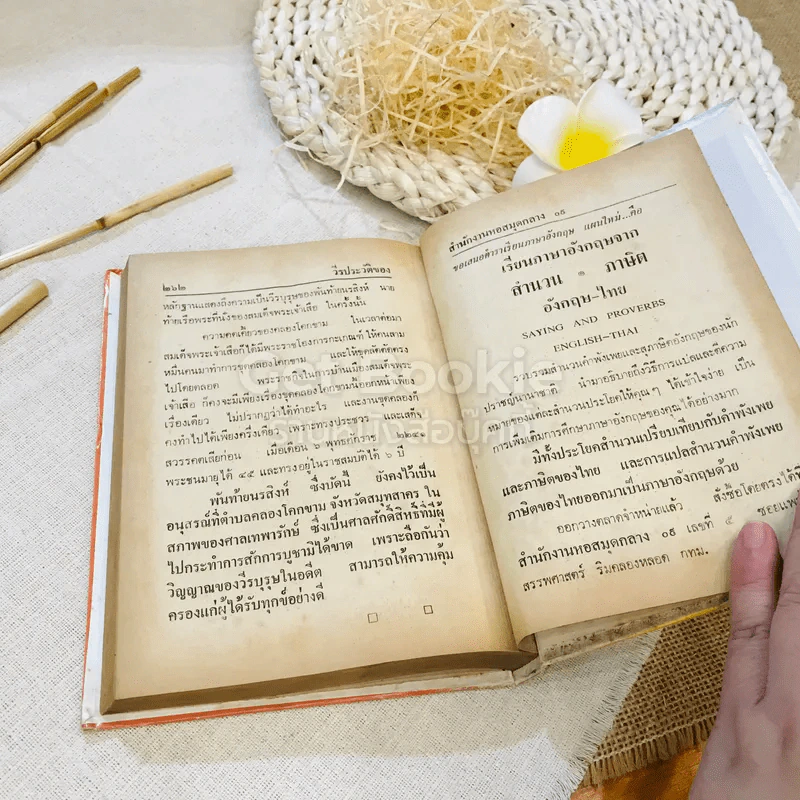 ๒๖๒
วีรประวัติของ
หลักฐานแสดงถึงความเป็นวีรบุรุษของพันท้ายนรสิงห์ นาย
ท้ายเรือพระที่นั่งของสมเด็จพระเจ้าเสือ ในครั้งนั้น
ความคดเคี้ยวของคลองโคกขาม ในเวลาต่อมา
สมเด็จพระเจ้าเสือก็ได้มีพระราชโองการกะเกณฑ์ ให้คนสาม
หมื่นคนมาทำการขุดคลองโคกขาม และให้ขุดลัดตัดตรง
ไปโดยตลอด พระราชกิจในการบ้านเมืองสมเด็จพระ
เจ้าเสือ ก็คงจะมีเพียงเรื่องขุดคลองโคกขามนี้ออกหน้าเพียง
เรื่องเดียว ไม่ปรากฏว่าได้ทำอะไร และงานขุดคลองก็
คงทำไปได้เพียงครึ่งเดียว เพราะทรงประชวร และเสด็จ
สวรรคตเสียก่อน เมื่อเดือน ๖ พุทธศักราช
พระชนมายุได้ ๔๕ และทรงอยู่ในราชสมบัติได้ ๖ ปี
พันท้ายนรสิงห์ ซึ่งบัดนี้ ยังคงไว้เป็น
อนุสรณ์ที่ตำบลคลองโคกขาม จังหวัดสมุทสาคร ใน
สภาพของศาลเทพารักษ์ ซึ่งเป็นศาลศักดิ์สิทธิ์ที่มีผู้
ไปกระทำการสักการบูชามิได้ขาด เพราะถือกันว่า
วิญญาณของวีรบุรุษในอดีต สามารถให้ความคุ้ม
ครองแก่ผู้ได้รับทุกข์อย่างดี
สำนักงานหอสมุดกลาง ๐๙
ขอเสนอตำราเรียนภาษาอังกฤษ แผนใหม่...คือ
เรียนภาษาอังกฤษจาก
สำนวน ๑ ภาษิต
อังกฤษ-ไทย
SAYING AND PROVERBS
ENGLISH-THAI
รวบรวมสำนวนคำพังเพยและสุภาษิตอังกฤษของนัก
ปราชญ์นานาชาติ นำมาอธิบายถึงวิธีการแปลและตีความ
หมายของแต่ละสำนวนประโยคให้คุณๆ ได้เข้าใจง่าย เป็น
การเพิ่มเติมการศึกษาภาษาอังกฤษของคุณได้อย่างมาก
มีทั้งประโยคสำนวนเปรียบเทียบกับคำพังเพย
และภาษิตของไทย และการแปลสำนวนคำพังเพย
ภาษิตของไทยออกมาเป็นภาษาอังกฤษด้วย
ออกวางตลาดจำหน่ายแล้ว สั่งซื้อโดยตรงได้ที่
สำนักงานหอสมุดกลาง ๐๙ เลขที่ ๕
สรรพศาสตร์ ริมคลองหลอด กทม.